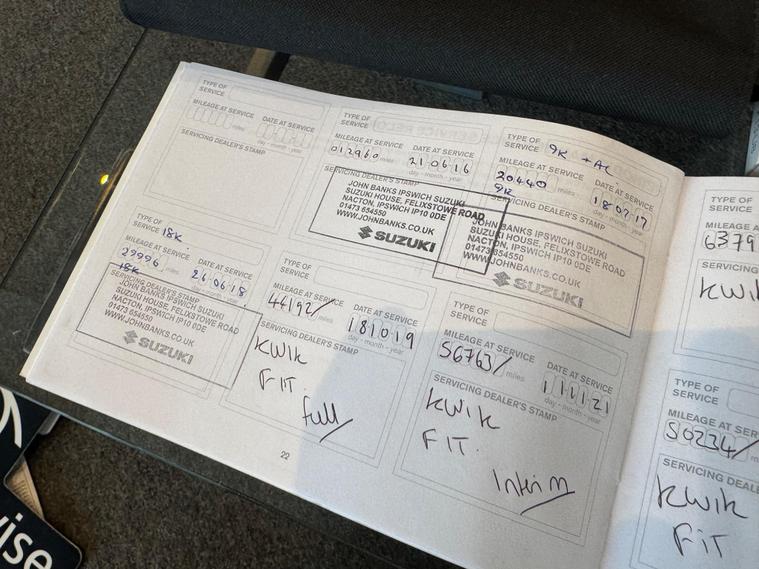 TYPE OF
SERVICE
MILEAGE AT SERVICE
DATE AT SERVICE
miles
day - month - year
SERVICING DEALER'S STAMP
TYPE OF
SERVICE
MILEAGE AT SERVICE
DATE AT SERVICE
012960 miles
21 06 16
day - month - year
SERVICING DEALER'S STAMP
JOHN BANKS IPSWICH SUZUKI
SUZUKI HOUSE, FELIXSTOWE ROAD
NACTON, IPSWICH IP10 0DE
01473 654550
WWW.JOHNBANKS.CO.UK
SUZUKI
TYPE OF
SERVICE
9K + AC
MILEAGE AT SERVICE
DATE AT SERVICE
20440 miles
18 07 17
9K
day - month - year
SERVICING DEALER'S STAMP
JOHN BANKS IPSWICH SUZUKI
SUZUKI HOUSE, FELIXSTOWE ROAD
NACTON, IPSWICH IP10 0DE
01473 654550
WWW.JOHNBANKS.CO.UK
SUZUKI
TYPE OF
SERVICE
18K
MILEAGE AT SERVICE
DATE AT SERVICE
29996 miles
26 06 18
+8K
day - month - year
SERVICING DEALER'S STAMP
JOHN BANKS IPSWICH SUZUKI
SUZUKI HOUSE, FELIXSTOWE ROAD
NACTON, IPSWICH IP10 0DE
01473 654550
WWW.JOHNBANKS.CO.UK
SUZUKI
TYPE OF
SERVICE
MILEAGE AT SERVICE
DATE AT SERVICE
44192/
18 10 19
day - month - year
SERVICING DEALER'S STAMP
KWIK
FIT.
full/
TYPE OF
SERVICE
MILEAGE AT SERVICE
DATE AT SERVICE
56763/ miles
1 11 21
day - month - year
SERVICING DEALER'S STAMP
KWIK
FIT.
Interim
22
TYPE OF
SERVICE
MILEAGE AT
6379
SERVICING
KWI
TYPE OF
SERVICE
MILEAGE AT
50234/
SERVICING DEA
KWIK
FIT
ise